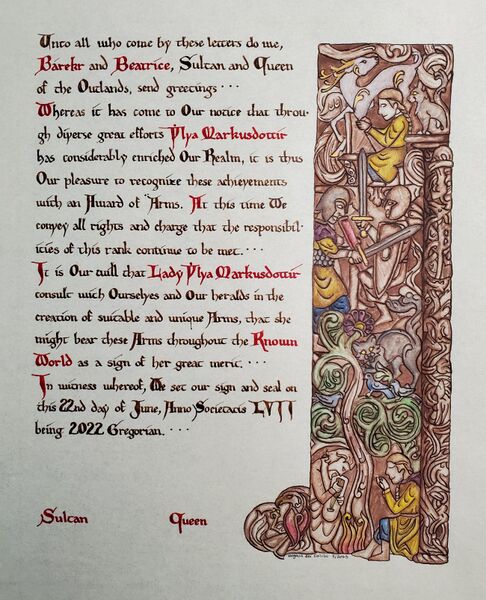 Unto all who come by these letters do we,
Barekr and Beatrice, Sultan and Queen
of the Outlands, send greetings...
Whereas it has come to Our notice that throu-
gh diverse great efforts Ylya Markusdottir
has considerably enriched Our Realm, it is thus
Our pleasure to recognize these achievements
with an Award of Arms. At this time We
convey all rights and charge that the responsibil-
ities of this rank continue to be met....
It is Our will that Lady Ylya Markusdottir
consult with Ourselves and Our heralds in the
creation of suitable and unique Arms, that she
might bear these Arms throughout the Known
World as a sign of her great merit....
In witness whereof, We set our sign and seal on
this 22nd day of June, Anno Societatis LVII
being 2022 Gregorian....
Sultan Queen